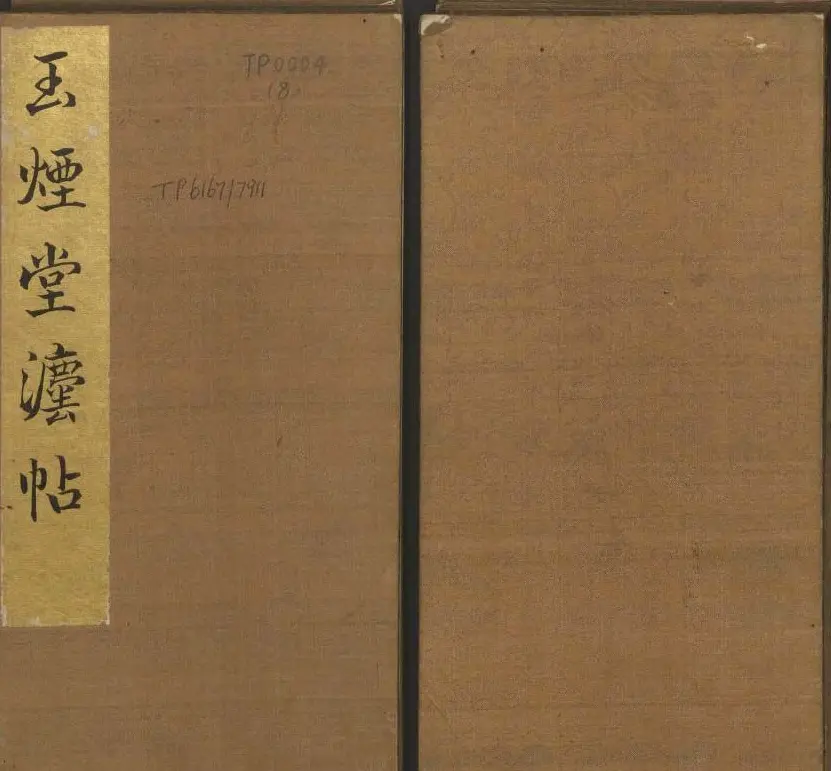 玉煙堂灋帖
TP0004
(8)
TP6167/7911